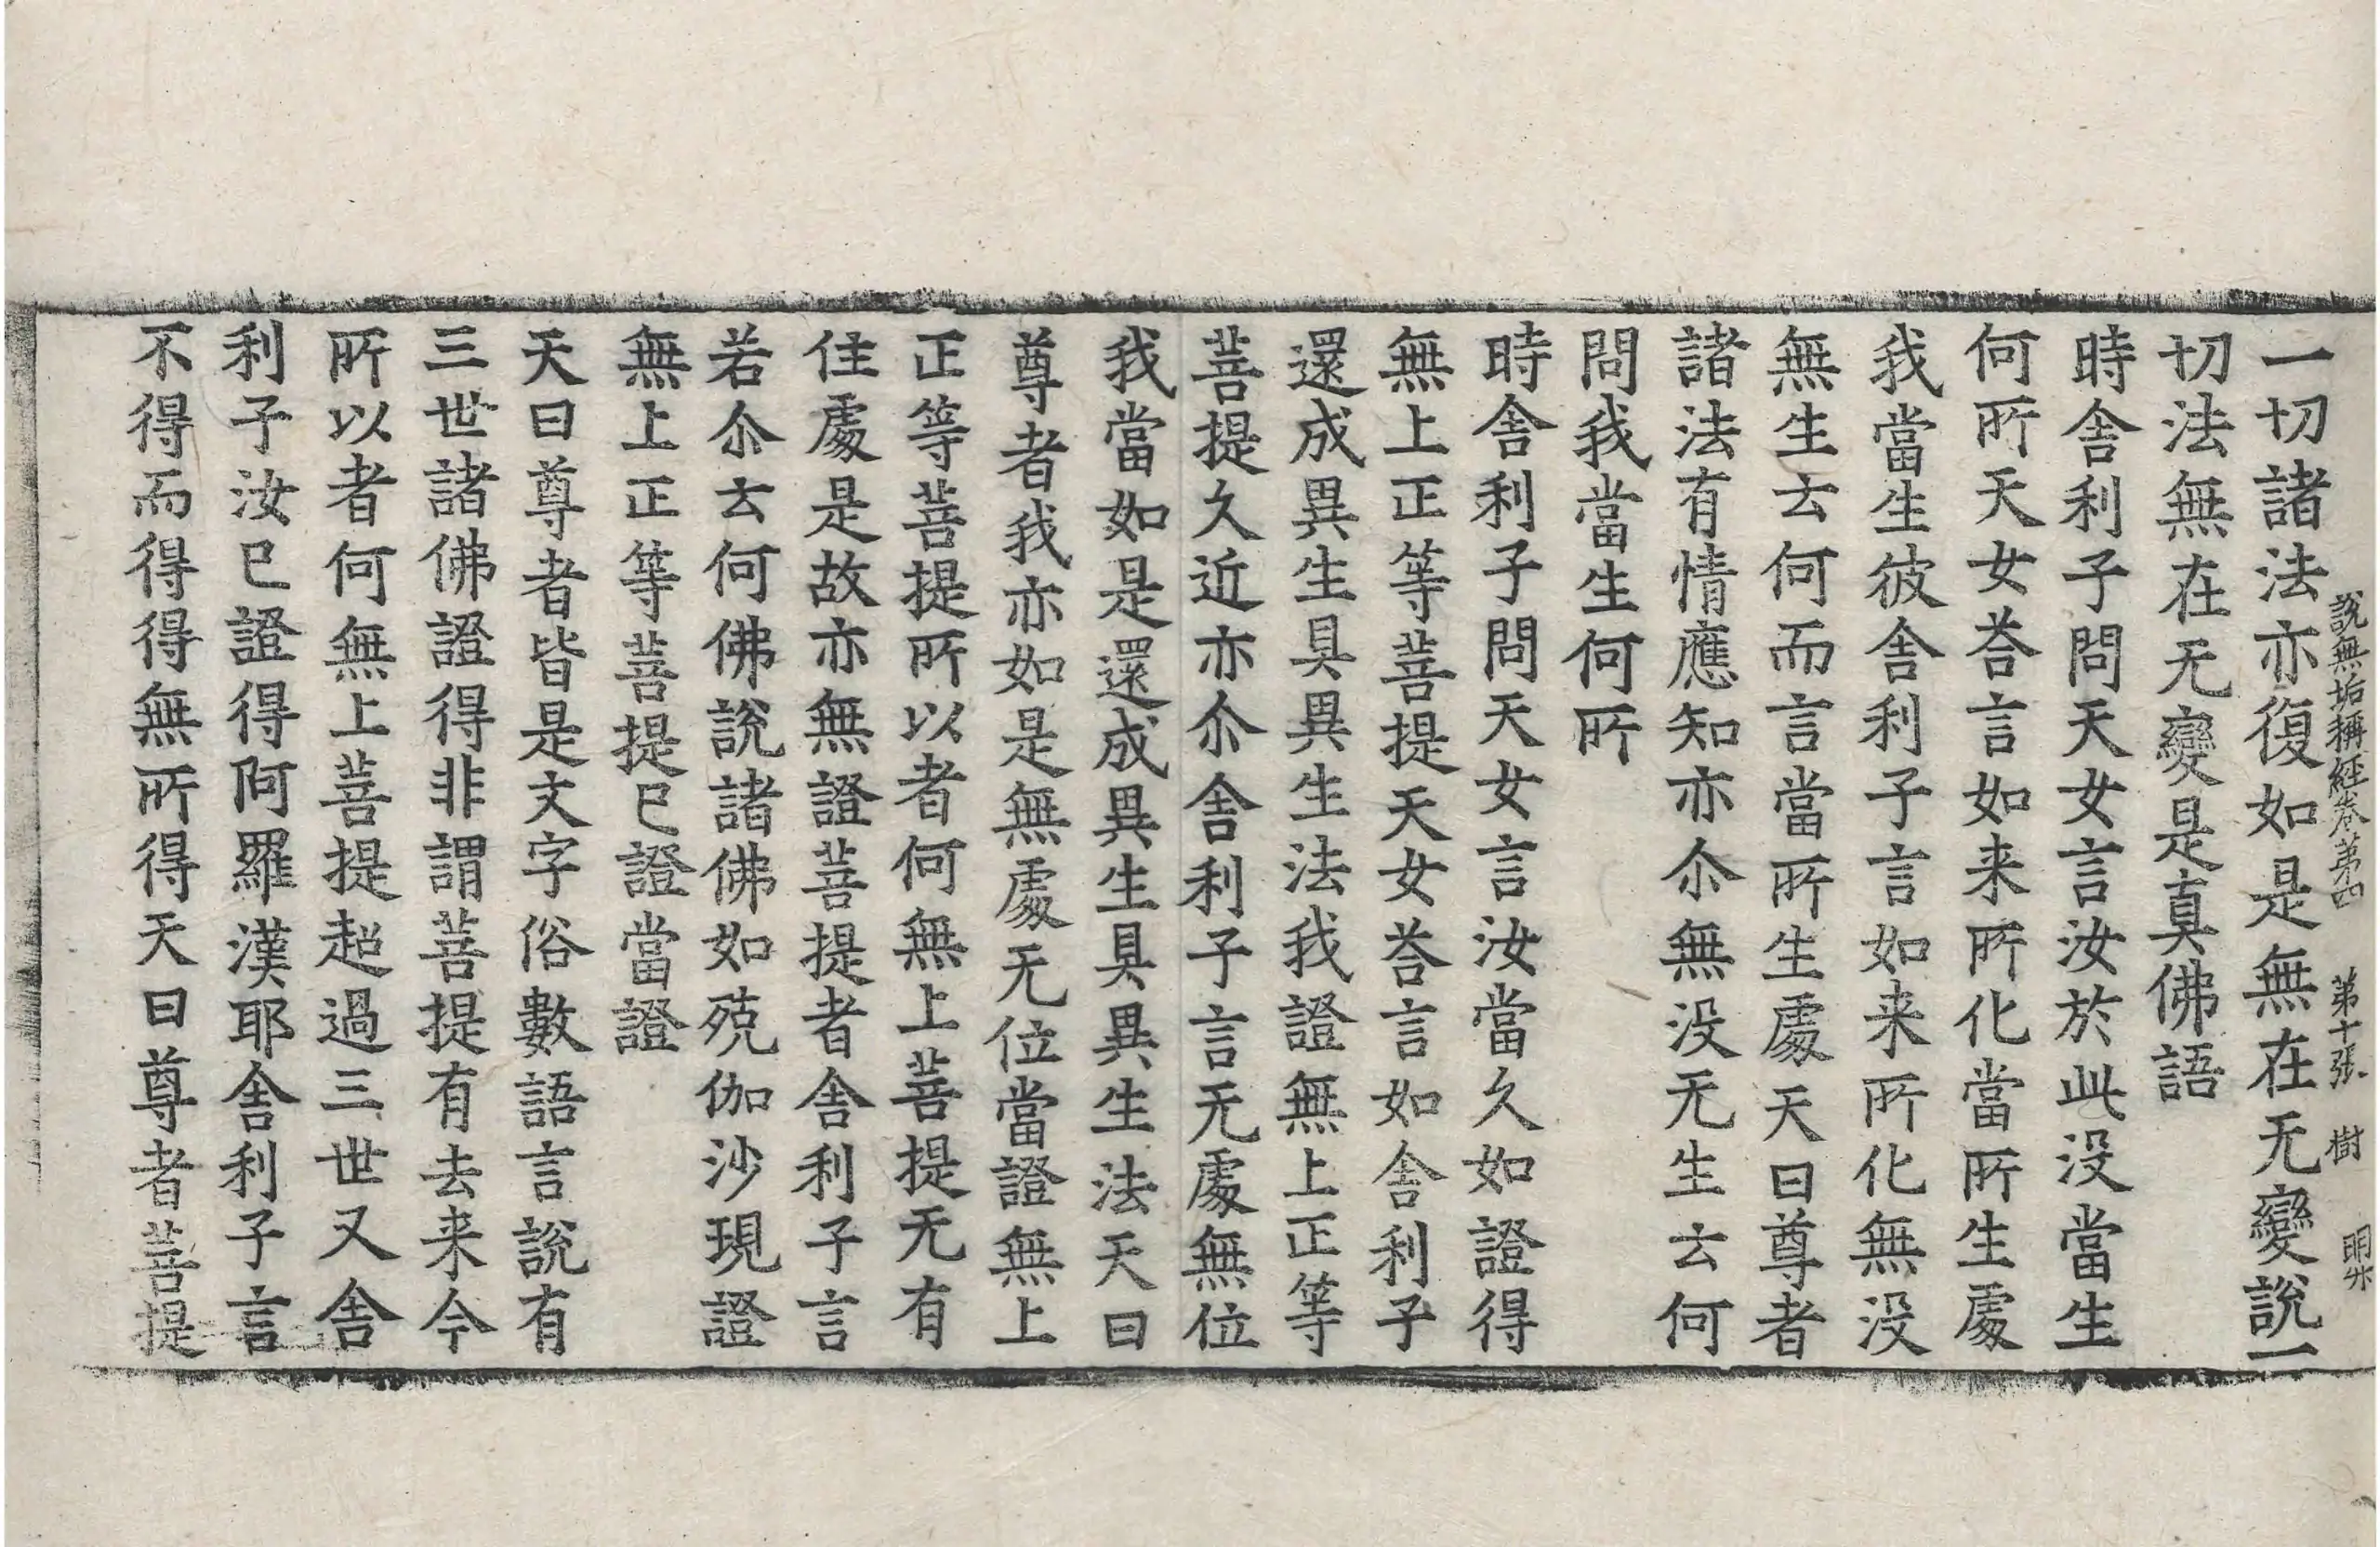 說無垢稱經卷第四 第十張 樹
一切諸法亦復如是無在无變說一
切法無在无變是真佛語
時舍利子問天女言汝於此没當生
何所天女荅言如来所化當所生處
我當生彼舍利子言如来所化無没
無生云何而言當所生處天曰尊者
諸法有情應知亦尒無没无生云何
問我當生何所
時舍利子問天女言汝當久如證得
無上正等菩提天女荅言如舍利子
還成異生具異生法我證無上正等
菩提久近亦尒舍利子言无處無位
我當如是還成異生具異生法天曰
尊者我亦如是無處无位當證無上
正等菩提所以者何無上菩提无有
住處是故亦無證菩提者舍利子言
若尒云何佛說諸佛如殑伽沙現證
無上正等菩提已證當證
天曰尊者皆是文字俗數語言說有
三世諸佛證得非謂菩提有去来今
所以者何無上菩提超過三世又舍
利子汝已證得阿羅漢耶舍利子言
不得而得得無所得天曰尊者菩提